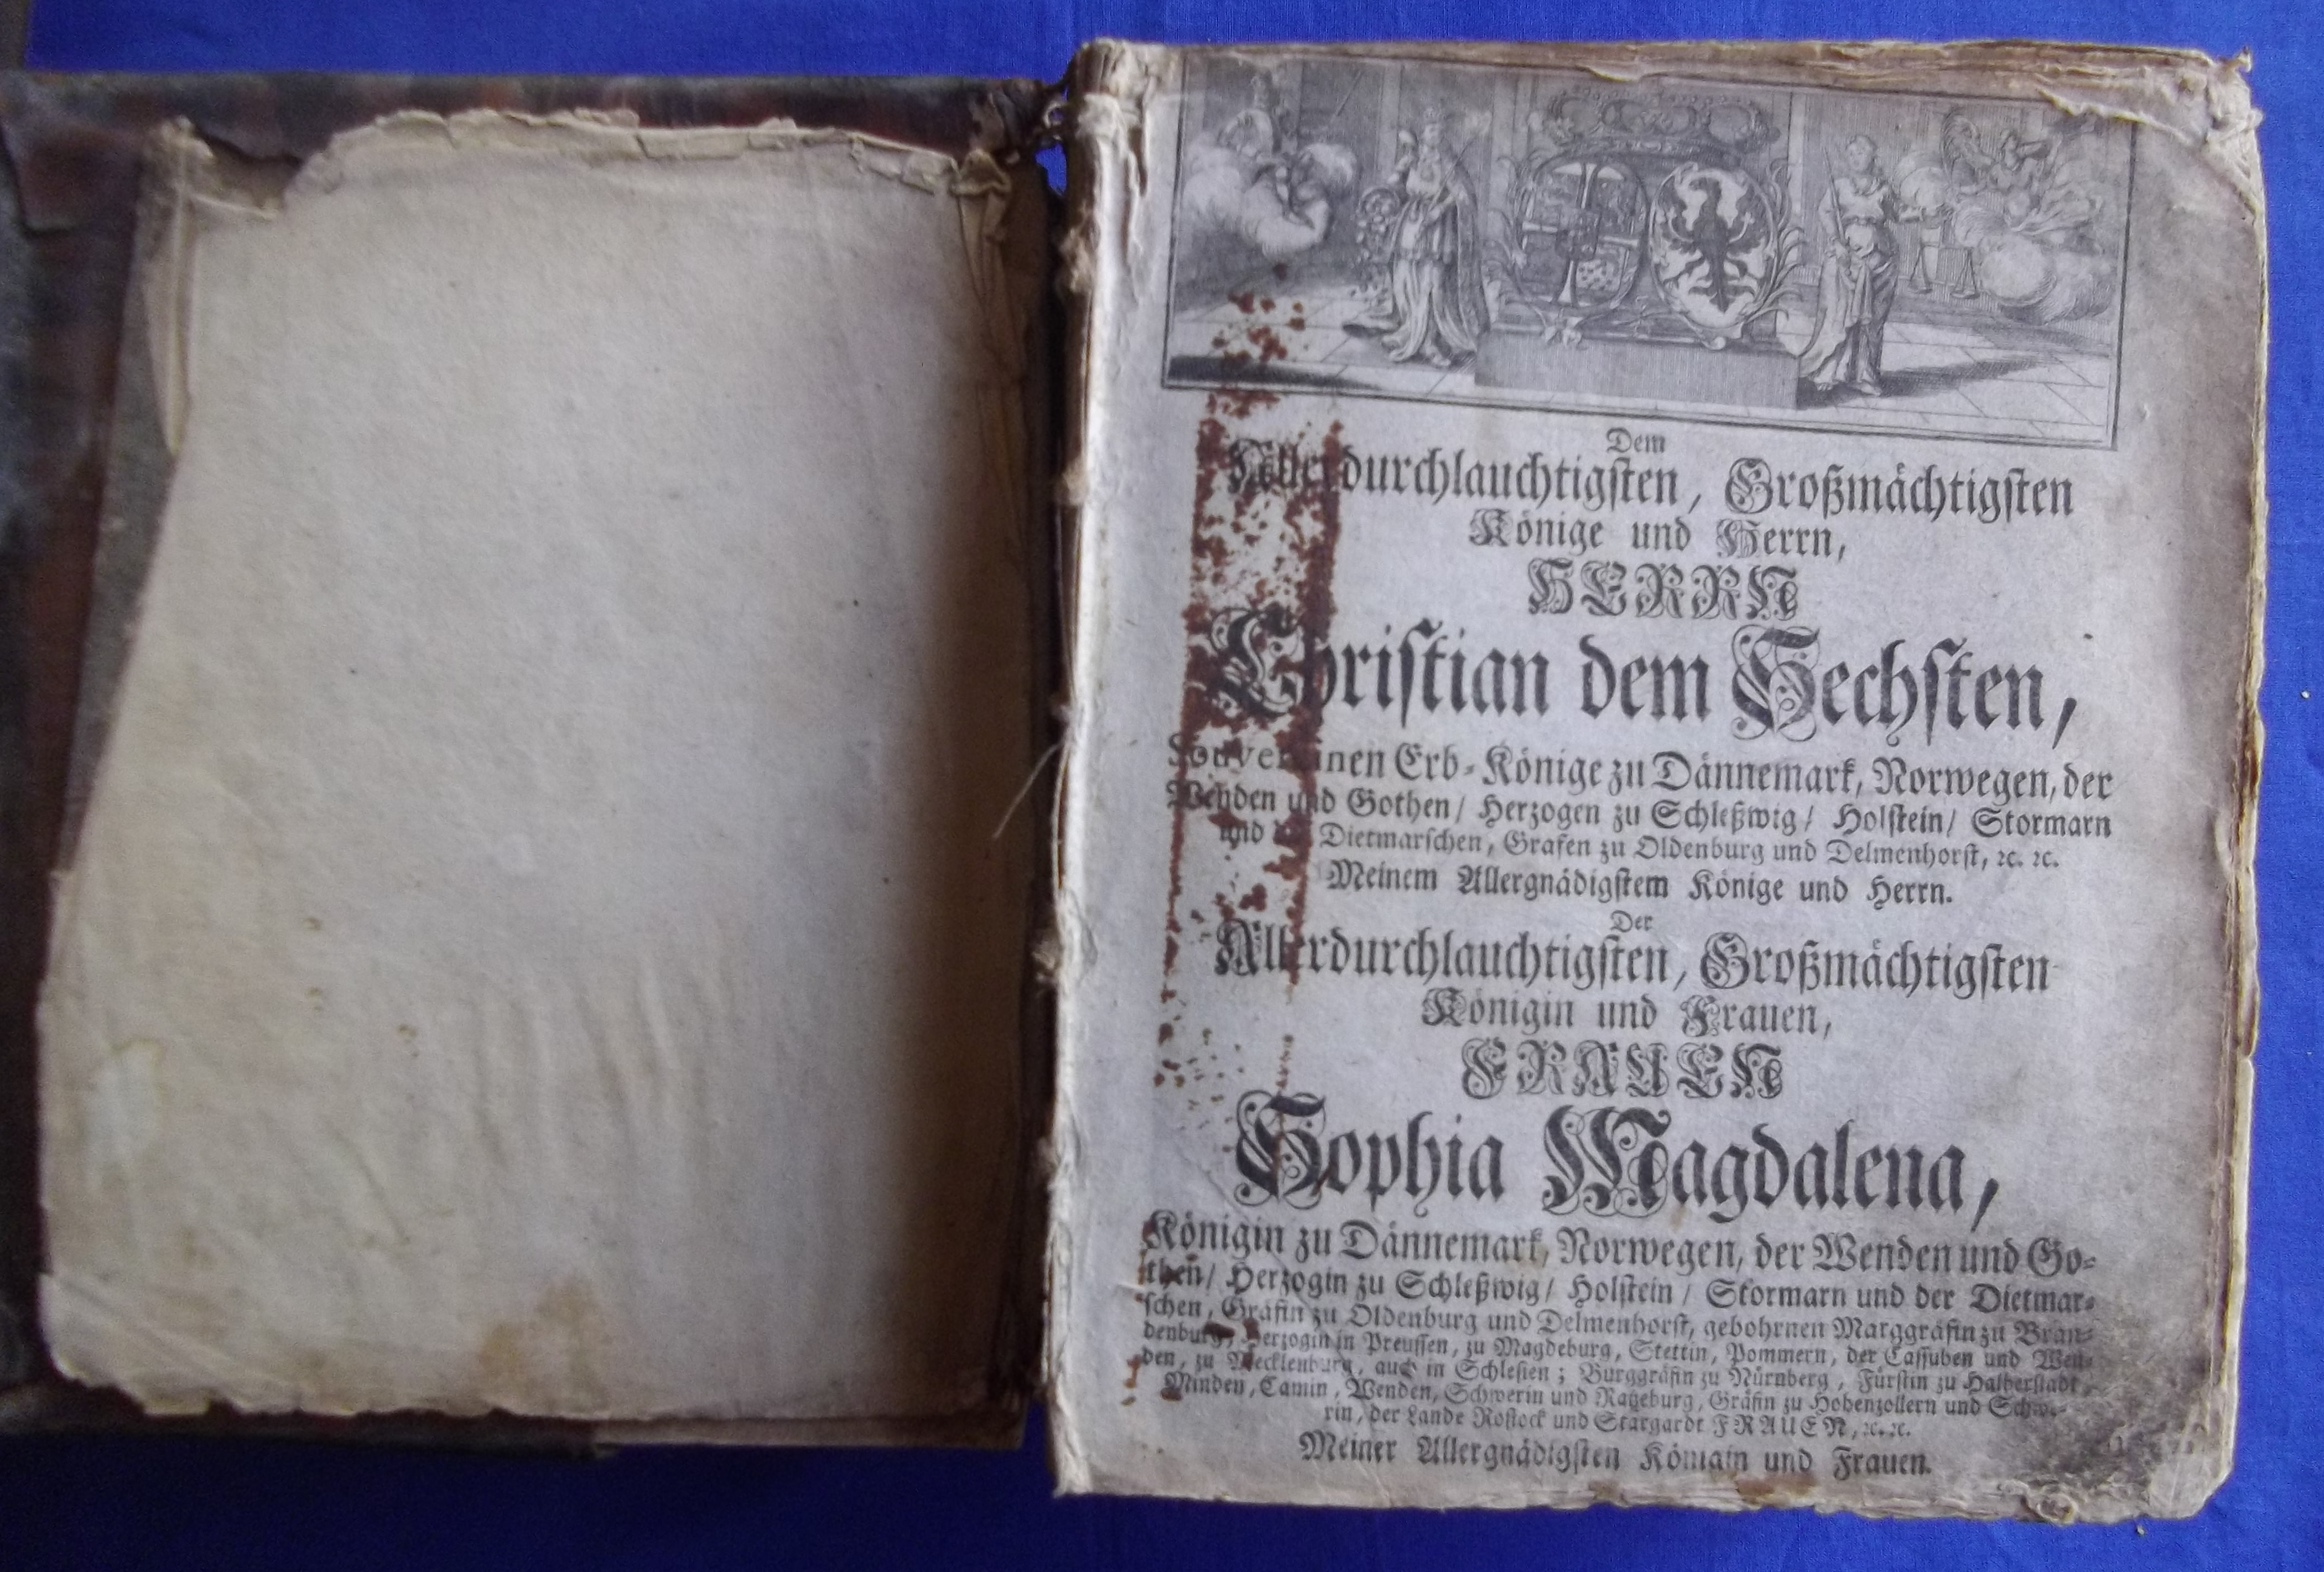 Dem
Allerdurchlauchtigsten, Großmächtigsten
Könige und Herrn,
HERRN
Christian dem Sechsten,
Souverainen Erb-Könige zu Dännemark, Norwegen, der
Wenden und Gothen/ Herzogen zu Schleßwig/ Holstein/ Stormarn
und Dietmarschen, Grafen zu Oldenburg und Delmenhorst, ꝛc. ꝛc.
Meinem Allergnädigstem Könige und Herrn.
Der
Allerdurchlauchtigsten, Großmächtigsten
Königin und Frauen,
FRAUEN
Sophia Magdalena,
Königin zu Dännemark, Norwegen, der Wenden und Go-
then/ Herzogin zu Schleßwig/ Holstein/ Stormarn und der Dietmar-
schen, Gräfin zu Oldenburg und Delmenhorst, gebohrnen Marggräfin zu Bran-
denburg, Herzogin in Preussen, zu Magdeburg, Stettin, Pommern, der Cassuben und Wen-
den, zu Mecklenburg, auch in Schlesien; Burggräfin zu Nürnberg, Fürstin zu Halberstadt,
Minden, Camin, Wenden, Schwerin und Ratzeburg, Gräfin zu Hohenzollern und Schwe-
rin, der Lande Rostock und Stargardt FRAUEN, ꝛc. ꝛc.
Meiner Allergnädigsten Königin und Frauen.